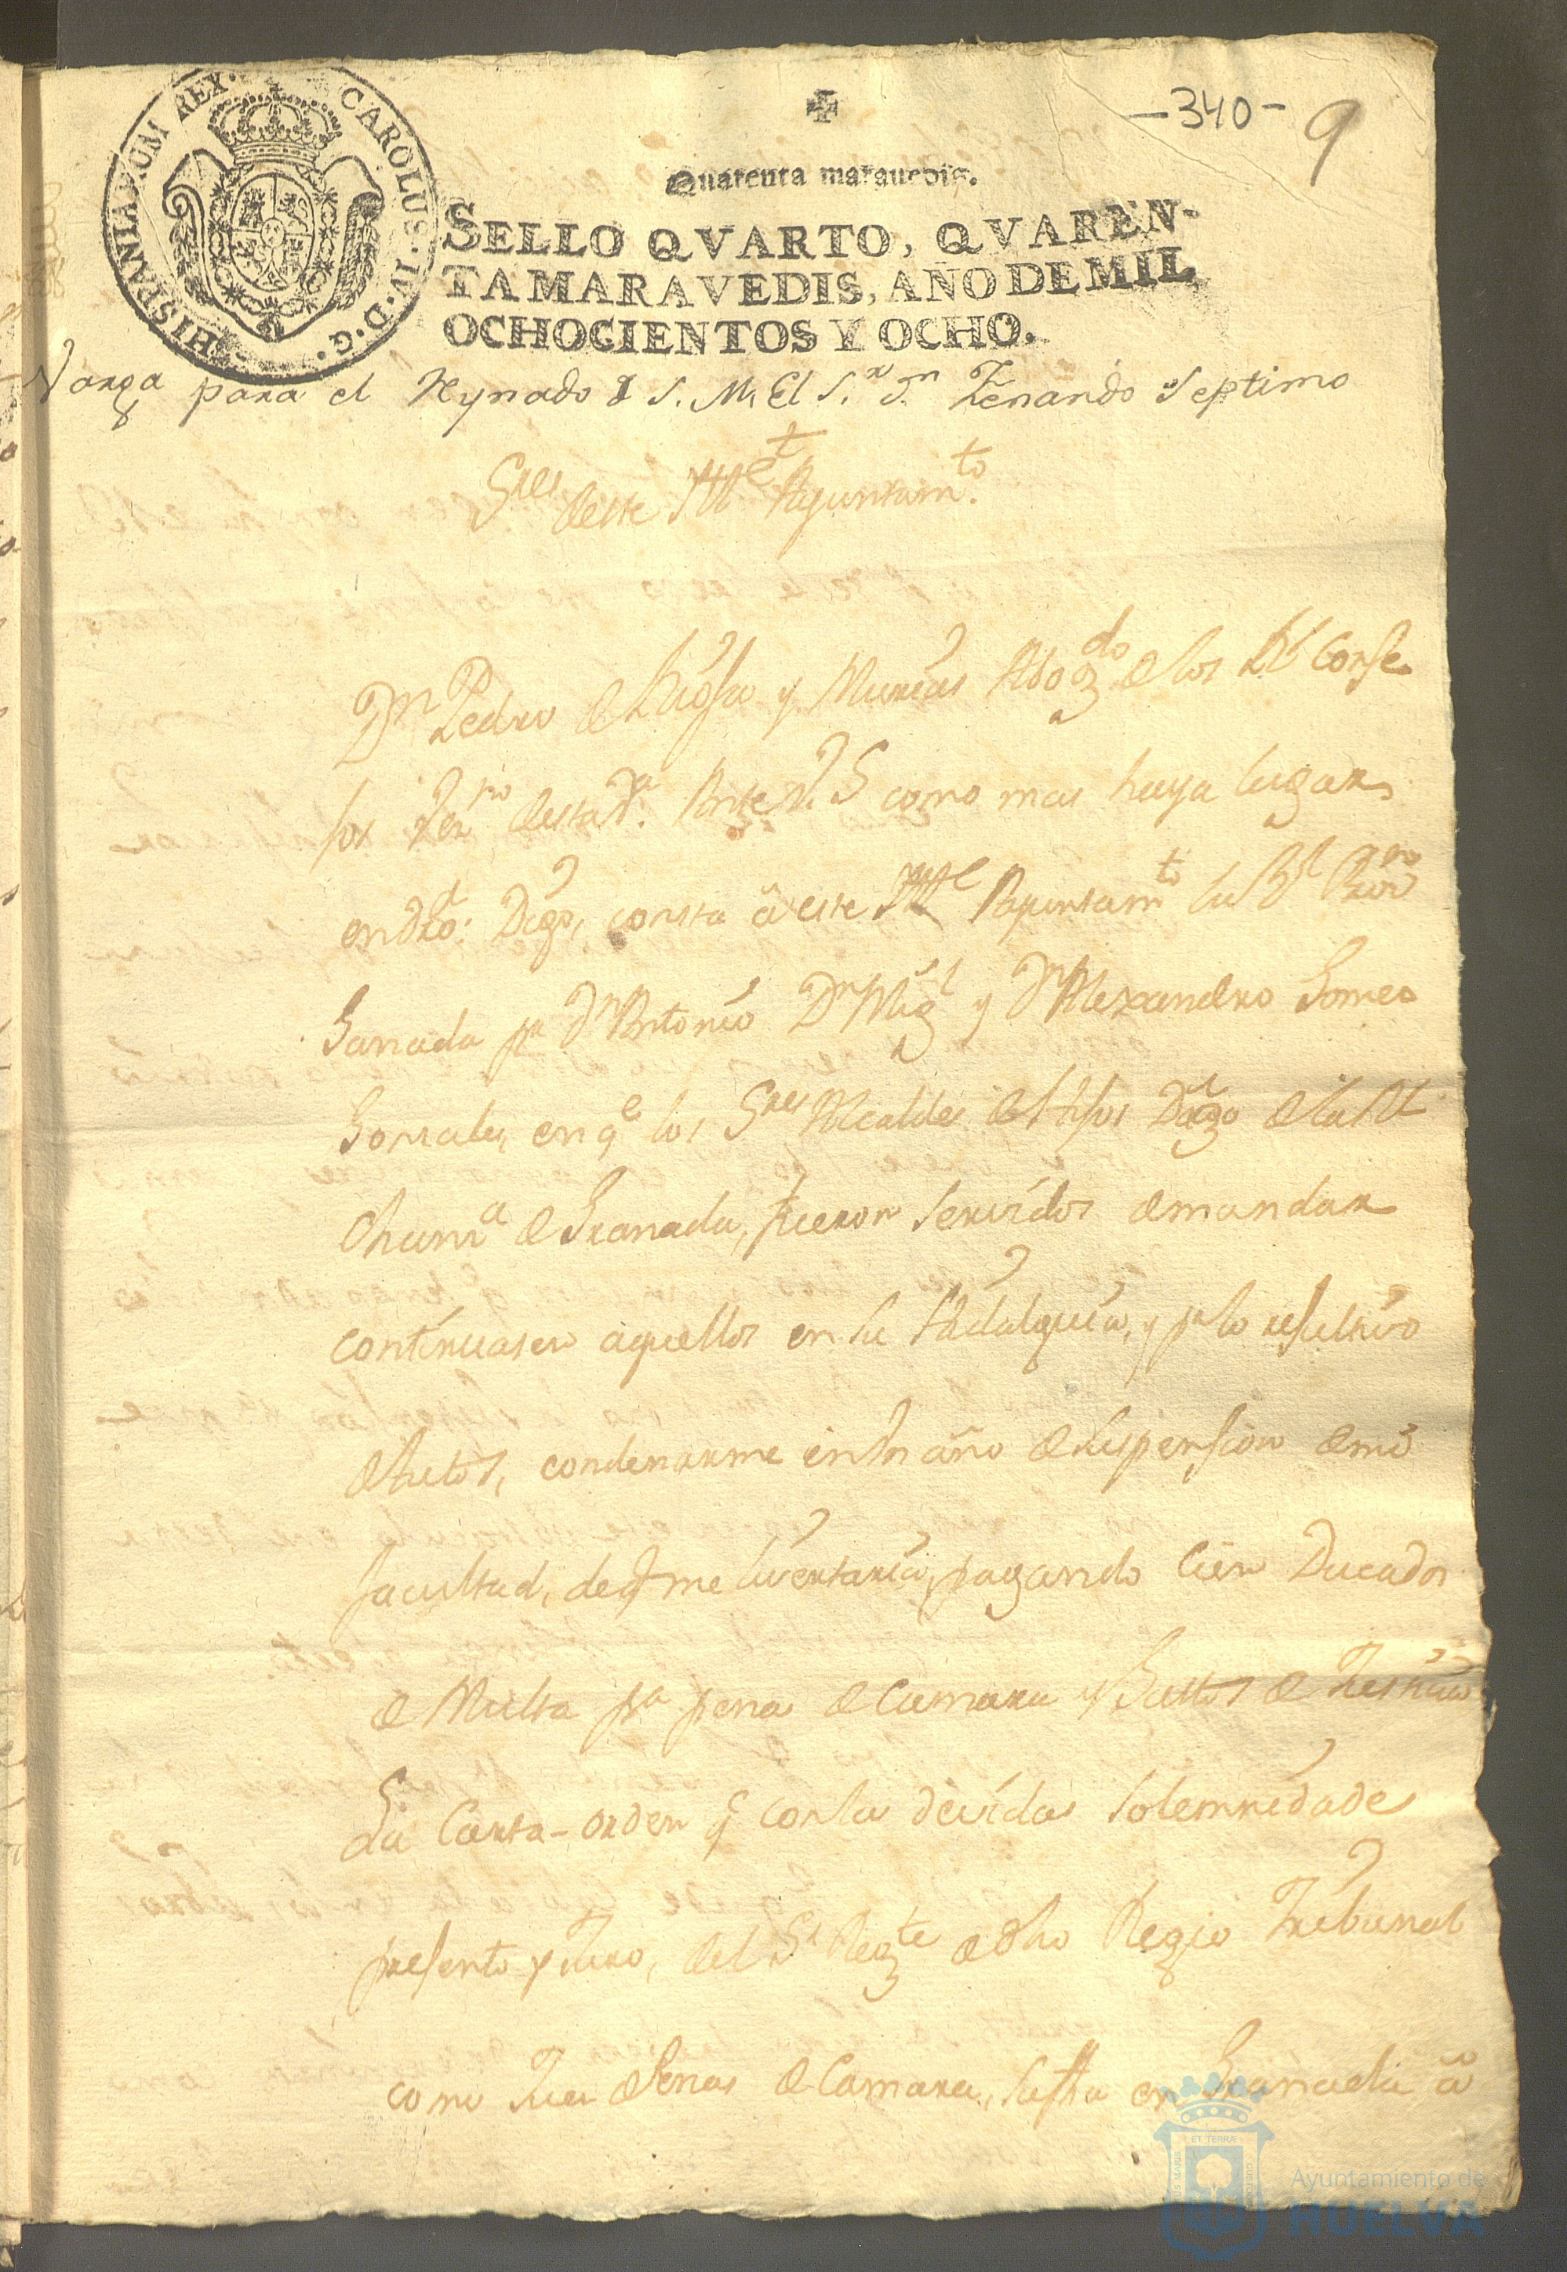 HISPANIARUM REX. CAROLUS. IV. D. G.
-340- 9
Quarenta marauedis.
SELLO QVARTO, QVAREN-
TA MARAVEDIS, AÑO DE MIL
OCHOCIENTOS Y OCHO.
Valga para el Reynado d S. M. El S.r D.n Fernando Septimo
S.res deste Ill.e Ayuntam.to
D.n Pedro de y Abog.do de los R.s Conse
jos Vez.no desta V.a Ante V. S como mas haya lugar
en dro: Digo, consta a este Ill.e Ayuntam.to la R.l Prov.on
Ganada p.r D.n Antonio D.n Mig.l y D.n Alexandro Gomez
Gonzalez, en q.e los S.res Alcaldes de Hijos Dalgo de la R.l
Chan.a de Granada, fueron servidos de mandar
continuasen aquellos en su Hidalguia, y p.r lo resultivo
de Autos, condenarme en Un año de suspension de mi
facultad, de q me livertaria, pagando Cien Ducados
de Multa p.a pena de Camara y Gastos de Justicia
La Carta-orden q con la devida solemnidades
presento y Juro, del S.r Reg.te de dho Regio Tribunal
como Juez de Penas de Camara, su fha en Granada a
Ayuntamiento de
HUELVA